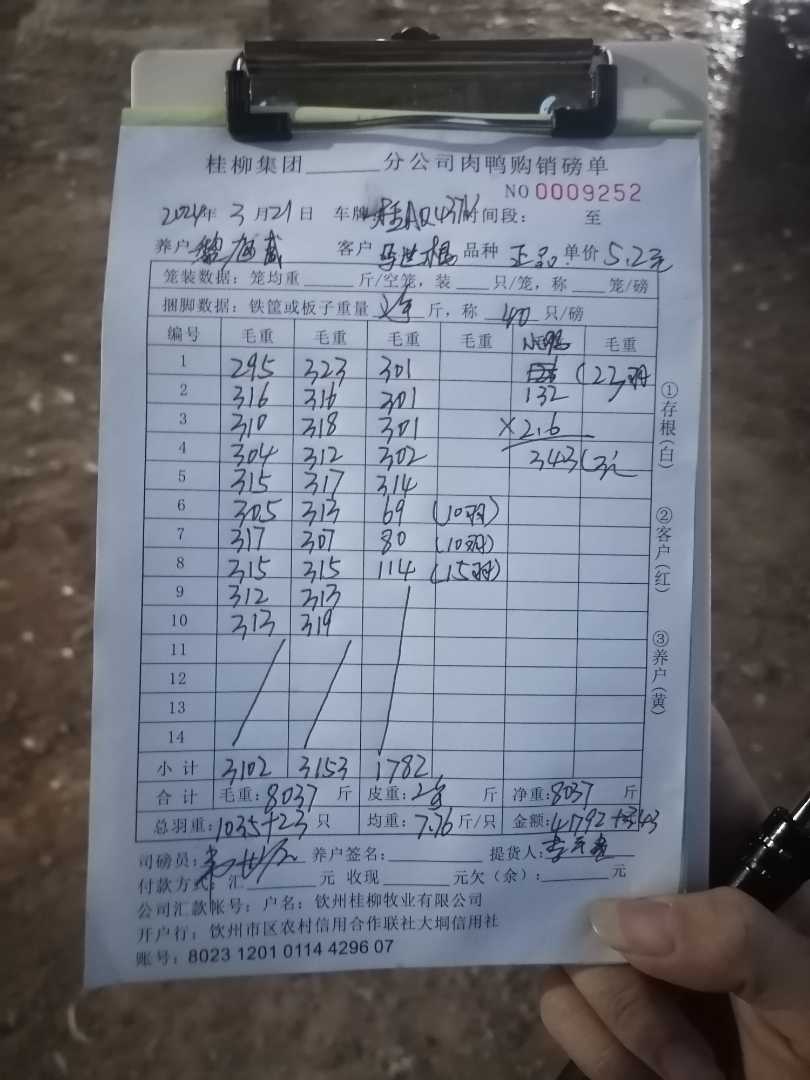 桂柳集团______分公司肉鸭购销磅单
NO 0009252
2024年 3月21日 车牌 桂A 时间段： 至
养户 客户 品种 正品 单价 5.2元
笼装数据：笼均重______斤/空笼，装____只/笼，称____笼/磅
捆脚数据：铁筐或板子重量 斤，称 40 只/磅
编号 毛重 毛重 毛重 毛重 毛重
1 295 323 301 (23羽
2 316 316 301 132
3 310 318 301 ×2.6
4 304 312 302 343
5 315 317 314
6 305 313 69 (10羽)
7 317 307 80 (10羽)
8 315 315 114 (15羽)
9 312 313
10 313 319
11
12
13
14
小计 3102 3153 1782
合计 毛重：8037 斤 皮重： 斤 净重：8037 斤
总羽重：1035+23 只 均重：7.76 斤/只 金额：41792+343
司磅员： 养户签名：________ 提货人：
付款方式：汇______元 收现______元欠（余）：______元
公司汇款帐号：户名：钦州桂柳牧业有限公司
开户行：钦州市区农村信用合作联社大垌信用社
账号：8023 1201 0114 4296 07
①存根（白）
②客户（红）
③养户（黄）